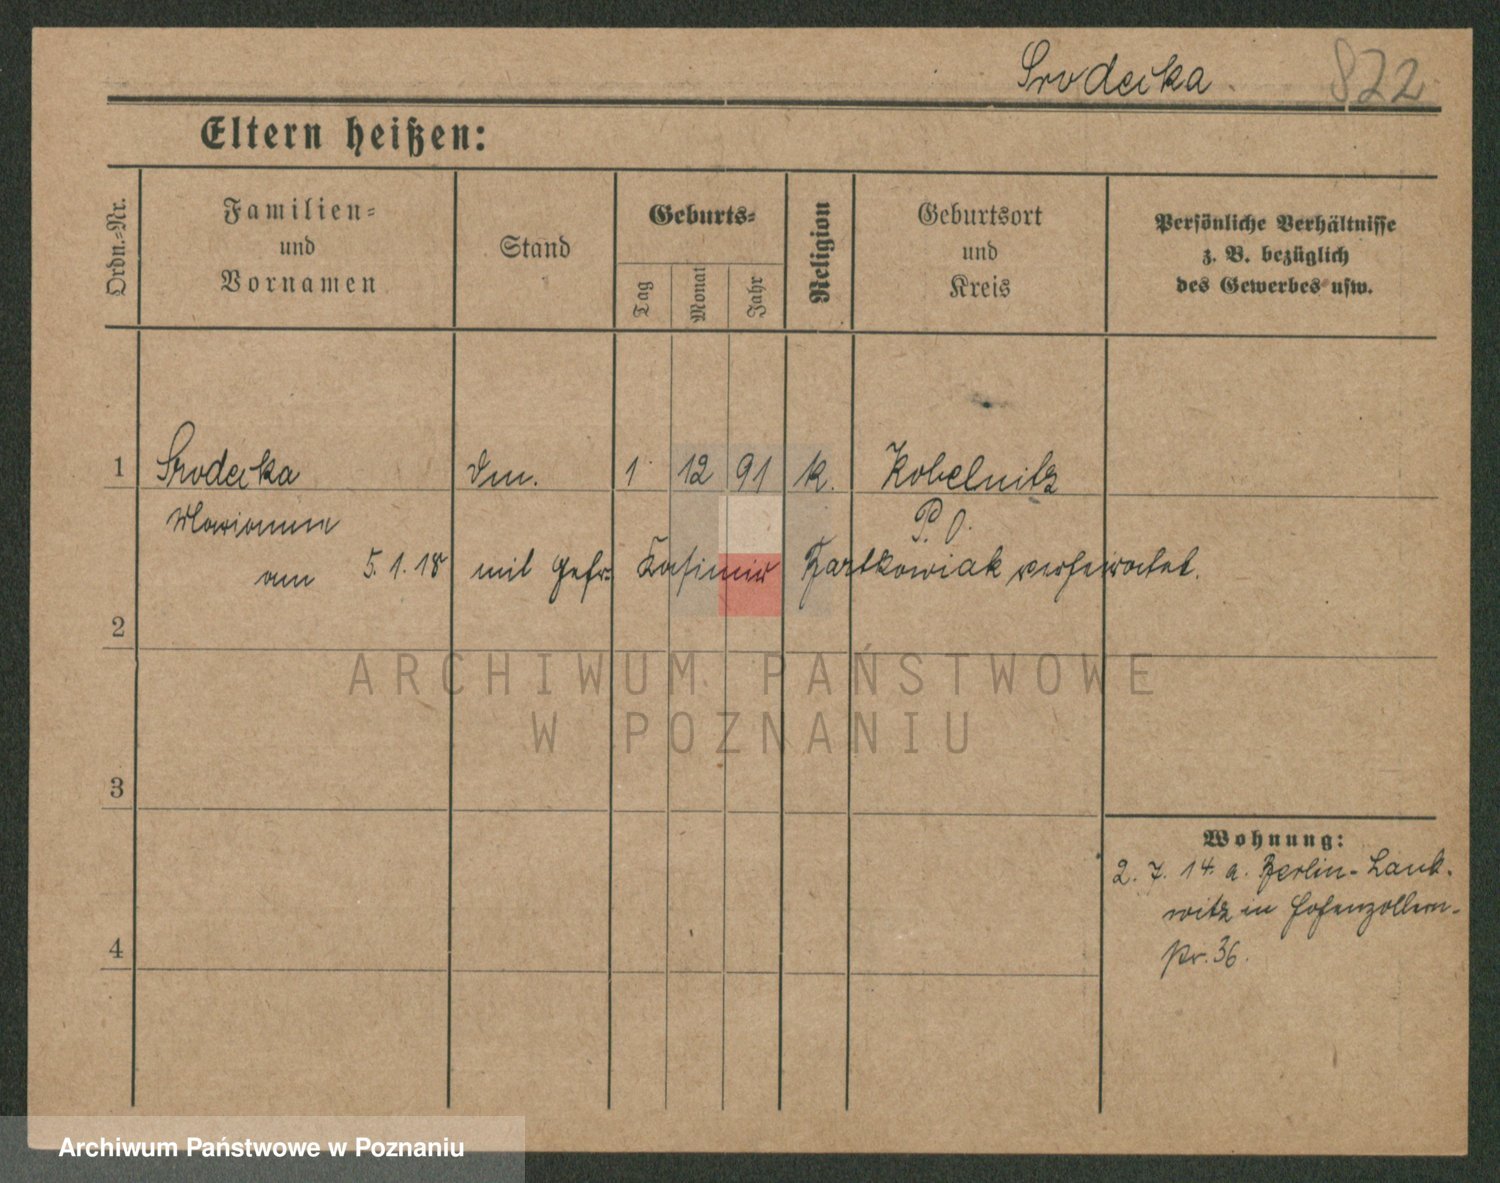 Srodecka 822
Eltern heißen:
Ordn.-Nr.
Familien-
und
Vornamen
Stand
Geburts-
Tag
Monat
Jahr
Religion
Geburtsort
und
Kreis
Persönliche Verhältnisse
z. B. bezüglich
des Gewerbes usw.
1 Srodecka 1 12 91 k. Kobelnitz
Marianna P. O.
am 5. 1. 18 mit Gefr. Kasimir Bartkowiak verheiratet.
2
3
4
Wohnung:
2. 7. 14. a. Berlin-Lank-
witz in Hohenzollern-
str. 36.
ARCHIWUM PAŃSTWOWE
W POZNANIU
Archiwum Państwowe w Poznaniu